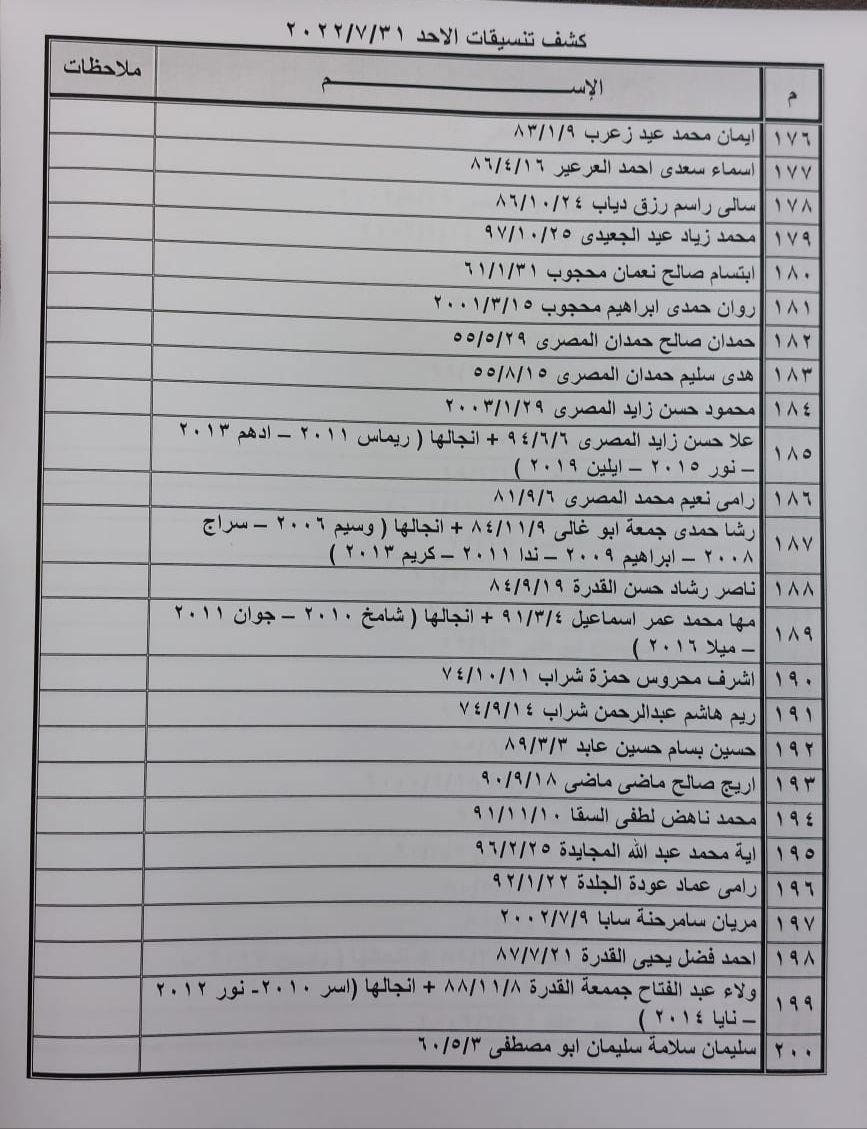 كشف تنسيقات الاحد ٢٠٢٢/٧/٣١
م الإســـــــم ملاحظات
١٧٦ ايمان محمد عيد زعرب ٨٣/١/٩
١٧٧ اسماء سعدى احمد العرعير ٨٦/٤/١٦
١٧٨ سالى راسم رزق دياب ٨٦/١٠/٢٤
١٧٩ محمد زياد عيد الجعيدى ٩٧/١٠/٢٥
١٨٠ ابتسام صالح نعمان محجوب ٦١/١/٣١
١٨١ روان حمدى ابراهيم محجوب ٢٠٠١/٣/١٥
١٨٢ حمدان صالح حمدان المصرى ٥٥/٥/٢٩
١٨٣ هدى سليم حمدان المصرى ٥٥/٨/١٥
١٨٤ محمود حسن زايد المصرى ٢٠٠٣/١/٢٩
١٨٥ علا حسن زايد المصرى ٩٤/٦/٦ + انجالها ( ريماس ٢٠١١ – ادهم ٢٠١٣
– نور ٢٠١٥ – ايلين ٢٠١٩ )
١٨٦ رامى نعيم محمد المصرى ٨١/٩/٦
١٨٧ رشا حمدى جمعة ابو غالى ٨٤/١١/٩ + انجالها ( وسيم ٢٠٠٦ – سراج
٢٠٠٨ – ابراهيم ٢٠٠٩ – ندا ٢٠١١ – كريم ٢٠١٣ )
١٨٨ ناصر رشاد حسن القدرة ٨٤/٩/١٩
١٨٩ مها محمد عمر اسماعيل ٩١/٣/٤ + انجالها ( شامخ ٢٠١٠ – جوان ٢٠١١
– ميلا ٢٠١٦ )
١٩٠ اشرف محروس حمزة شراب ٧٤/١٠/١١
١٩١ ريم هاشم عبدالرحمن شراب ٧٤/٩/١٤
١٩٢ حسين بسام حسين عابد ٨٩/٣/٣
١٩٣ اريج صالح ماضى ماضى ٩٠/٩/١٨
١٩٤ محمد ناهض لطفى السقا ٩١/١١/١٠
١٩٥ اية محمد عبد الله المجايدة ٩٦/٢/٢٥
١٩٦ رامى عماد عودة الجلدة ٩٢/١/٢٢
١٩٧ مريان سامرحنة سابا ٢٠٠٢/٧/٩
١٩٨ احمد فضل يحيى القدرة ٨٧/٧/٢١
١٩٩ ولاء عبد الفتاح جممعة القدرة ٨٨/١١/٨ + انجالها (اسر ٢٠١٠- نور ٢٠١٢
– نايا ٢٠١٤ )
٢٠٠ سليمان سلامة سليمان ابو مصطفى ٦٠/٥/٣